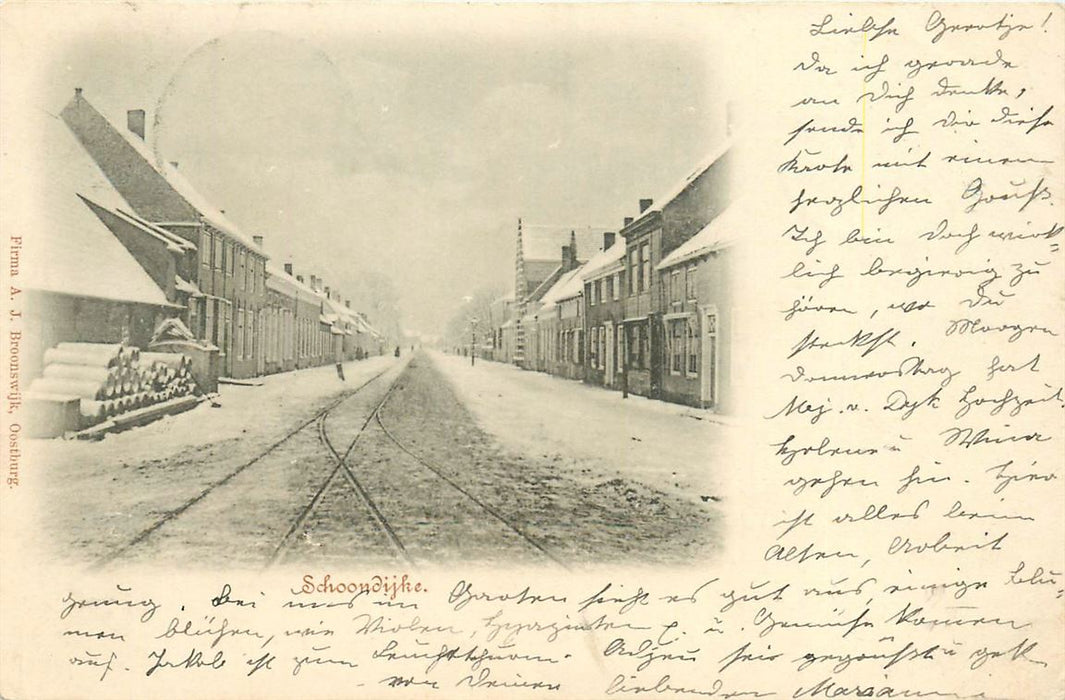 Firma A. J. Bronswijk, Oostburg.
Schoondijke.
Liebse Geertje!
Da ich gerade
an Dich denke,
sende ich Dir diese
Karte mit einem
herzlichen Gruß.
Ich bin doch wirk-
lich begierig zu
hören, wo Du
steckst. Morgen
Donnerstag hat
Mej. v. Dyk Hochzeit.
Helene u Wina
gehen hin. Hier
ist alles beim
Alten, Arbeit
genug. Bei uns im Garten sieht es gut aus, einige Blu-
men blühen, wie Violen, Hyazinten u. Gemüse kommen
auf. Jakob ist zum Adieu sei gegrüßt u
von Deiner liebenden